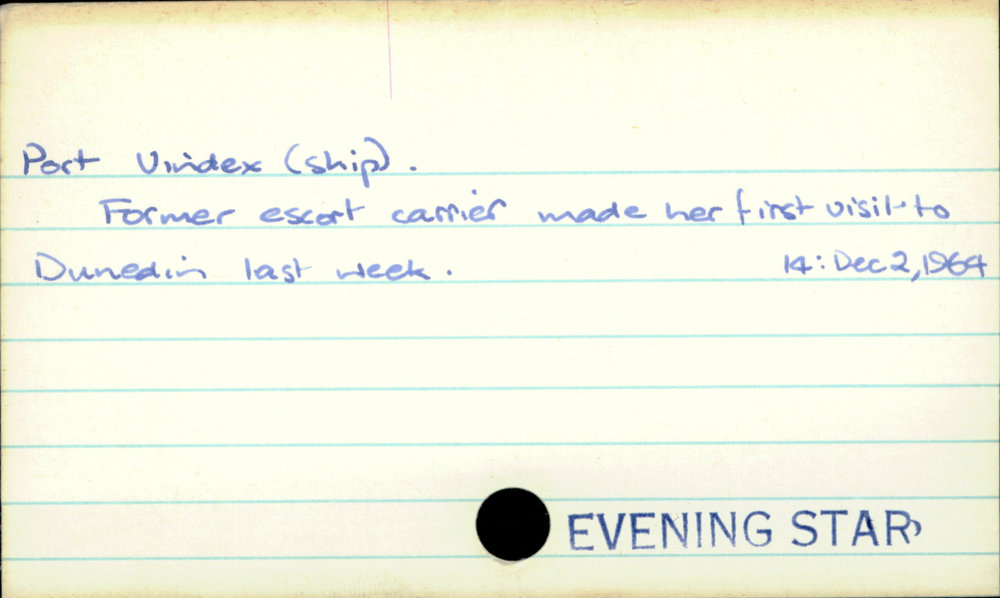 Port Vindex (ship).
Former escort carrier made her first visit to
Dunedin last week. 14: Dec 2, 1964
EVENING STAR